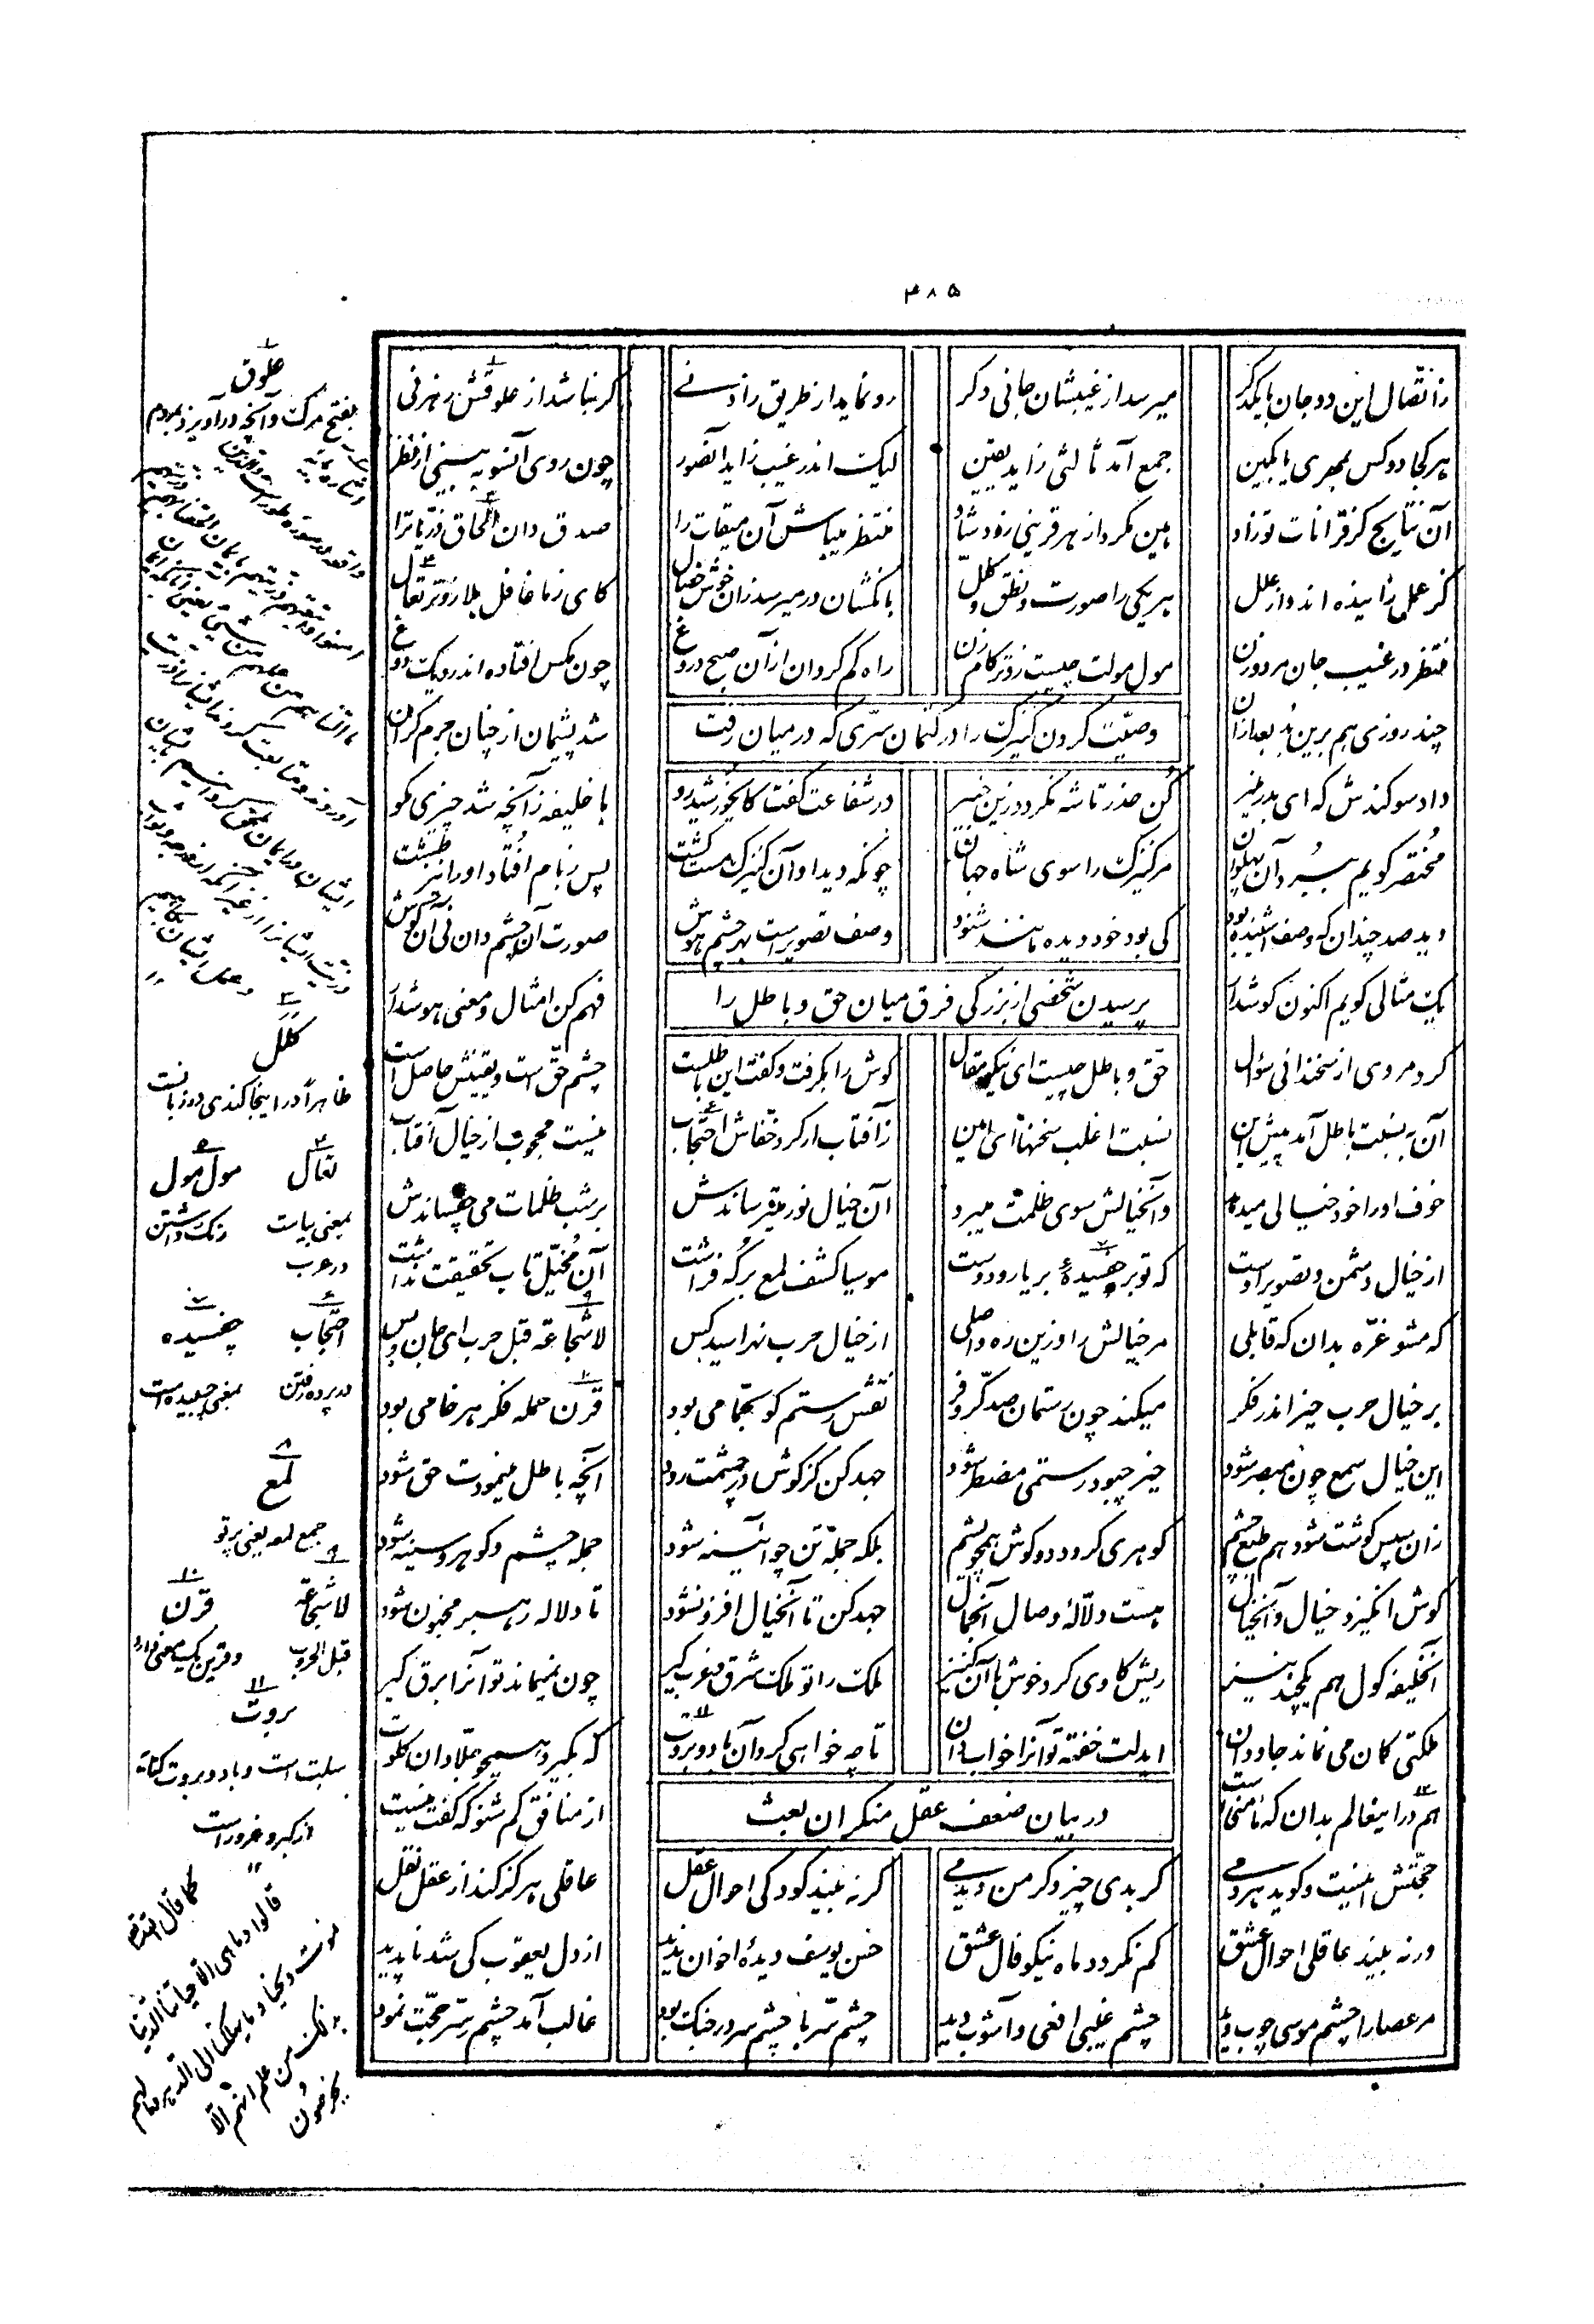 ۴۸۵
زاتّصال این دو جان با یکدگر میرسد از غیبشان جانی دگر رو نماید از طریق زادنی گر نباشد از علوقش رهزنی
هر کجا دو کس بمهری یا بکین جمع آمد ثالثی زاید یقین لیک اندر غیب زاید آن صور چون روی آنسو به بینی از نظر
آن نتایج کز قرانات تو زاد هین مگرد از هر قرینی زود شاد منتظر میباش آن میقات را صدق دان الحاق ذرّیات را
کز عمل زائیده اند و از علل هر یکی را صورت و نطق و کلل بانگشان در میرسد زان خوش خصال کای ز ما غافل هلا زوتر تعال
منتظر در غیب جان مرد و زن مول مولت چیست زوتر گام زن راه گم کرد او از آن صبح دروغ چون مگس افتاده اندر دیگ دوغ
وصیّت کردن کنیزک را در کتمان سرّی که در میان رفت
چند روزی هم برین بُد بعد از آن شد پشیمان از چنان جرم گران
داد سوگندش که ای بدر منیر کن حذر تا شه نگردد زین خبیر در شفاعت گفت کای خورشید رو با خلیفه زآنچه شد چیزی مگو
مختصر گویم ببرد آن پهلوان مر کنیزک را سوی شاه جهان چونکه دید او آن کنیزک مست گشت پس ز بام افتاد او را نیز طشت
دید صد چندان که وصف اشنیده بود کی بود خود دیده مانند شنود وصف تصویر است بهر چشم هوش صورت آن چشم دان نی آن گوش
پرسیدن شخصی از بزرگی فرق میان حق و باطل را
یک مثالی گویم اکنون گوش دار فهم کن امثال و معنی هوش دار
کرد مردی از سخندانی سؤال حقّ و باطل چیست ای نیکو مقال گوش را بگرفت و گفت این باطلست چشم حقّ است و یقینش حاصل است
آن به نسبت باطل آمد پیش این نسبت اغلب سخنها ای امین زآفتاب ار کرد خفّاش احتجاب نیست محجوب از خیال آفتاب
خوف او را خود خیالی میدهد وآنخیالش سوی ظلمت میبرد آن خیال نور میترساندش بر شب ظلمات می‌چفساندش
از خیال دشمن و تصویر اوست که تو بر چفسیدهٔ بر یار و دوست موسیا کشف لمع بر که فراشت آن مُخَیّل تاب تحقیقت نداشت
که مشو غرّه بدان که قابلی مر خیالش را و زین ره واصلی از خیال حرب نهراسید کس لا شجاعة قبل حرب ای جان و بس
بر خیال حرب حیز اندر فکر میکند چون رستمان صد کرّ و فر نقش رستم کو بحمّامی بود قرن حمله فکر هر خامی بود
این خیال سمع چون مبصر شود حیز چبود رستمی مضطر شود جهد کن کز گوش در چشمت رود آنچه باطل مینمودت حق شود
زان سپس گوشت شود هم طبع چشم گوهری گردد دو گوش همچو یشم بلکه جملهٔ تن چو آئینه شود جمله چشم و گوهر و سینه شود
گوش انگیزد خیال و آنخیال هست دلّالهٔ وصال آنجمال جهد کن تا آنخیال افزون شود تا دلاله رهبر مجنون شود
آنخلیفه گول هم یکچند نیز ریش گاوی کرد خوش با آن کنیز ملک را تو ملک شرق و غرب گیر چون نمیماند تو آنرا برق گیر
ملکتی کان می نماند جاودان ایدلت خفته تو آنرا خواب دان تا چه خواهی کرد آن باد و بروت که بگیرد همچو جلّادان گلوت
در بیان ضعف عقل منکران بعث
هم درا ینعالم بدان که مأمنی است از منافق کم شنو که گفت نیست
حجّتش اینست و گوید هر دمی گر بدی چیزی دگر من دیدمی گر نه بیند کودکی احوال عقل عاقلی هرگز کند از عقل نقل
ور نه بیند عاقلی احوال عشق کم نگردد ماه نیکو فال عشق حسن یوسف دیدهٔ اخوان ندید از دل یعقوب کی شد ناپدید
مر عصا را چشم موسی چوب دید چشم غیبی افعی و آشوب دید چشم سر با چشم سر در جنگ بود غالب آمد چشم سرّ حجّت نمود
۱
علوق
بفتح مرگ و آنچه درآویزد بمردم
۲
کلل
ظاهراً در اینجا کندی در زبانست
۳
تعال
بمعنی بیاست
در عرب
۵
مول مول
درنگ داشتن
۶
احتجاب
در پرده رفتن
۷
چفسیده
بمعنی چسبیده است
۸
لمع
جمع لمعه یعنی پرتو
۹
لا شجاعة
قبل الحرب
۱۰
قرن
و قرین یک معنی دارد
۱۱
بروت
سبلت است و باد و بروت کنایه
از کبر و غرور است
۱۲
کما قال الله تعالی
قالوا ما هی الّا حیاتنا الدّنیا
نموت و نحیا و ما یهلکنا الّا الدّهر و ما لهم
بذلک من علم ان هم الّا
یخرصون